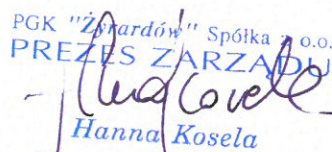 PGK "Żyrardów" Spółka z o.o.
PREZES ZARZĄDU
Hanna Kosela